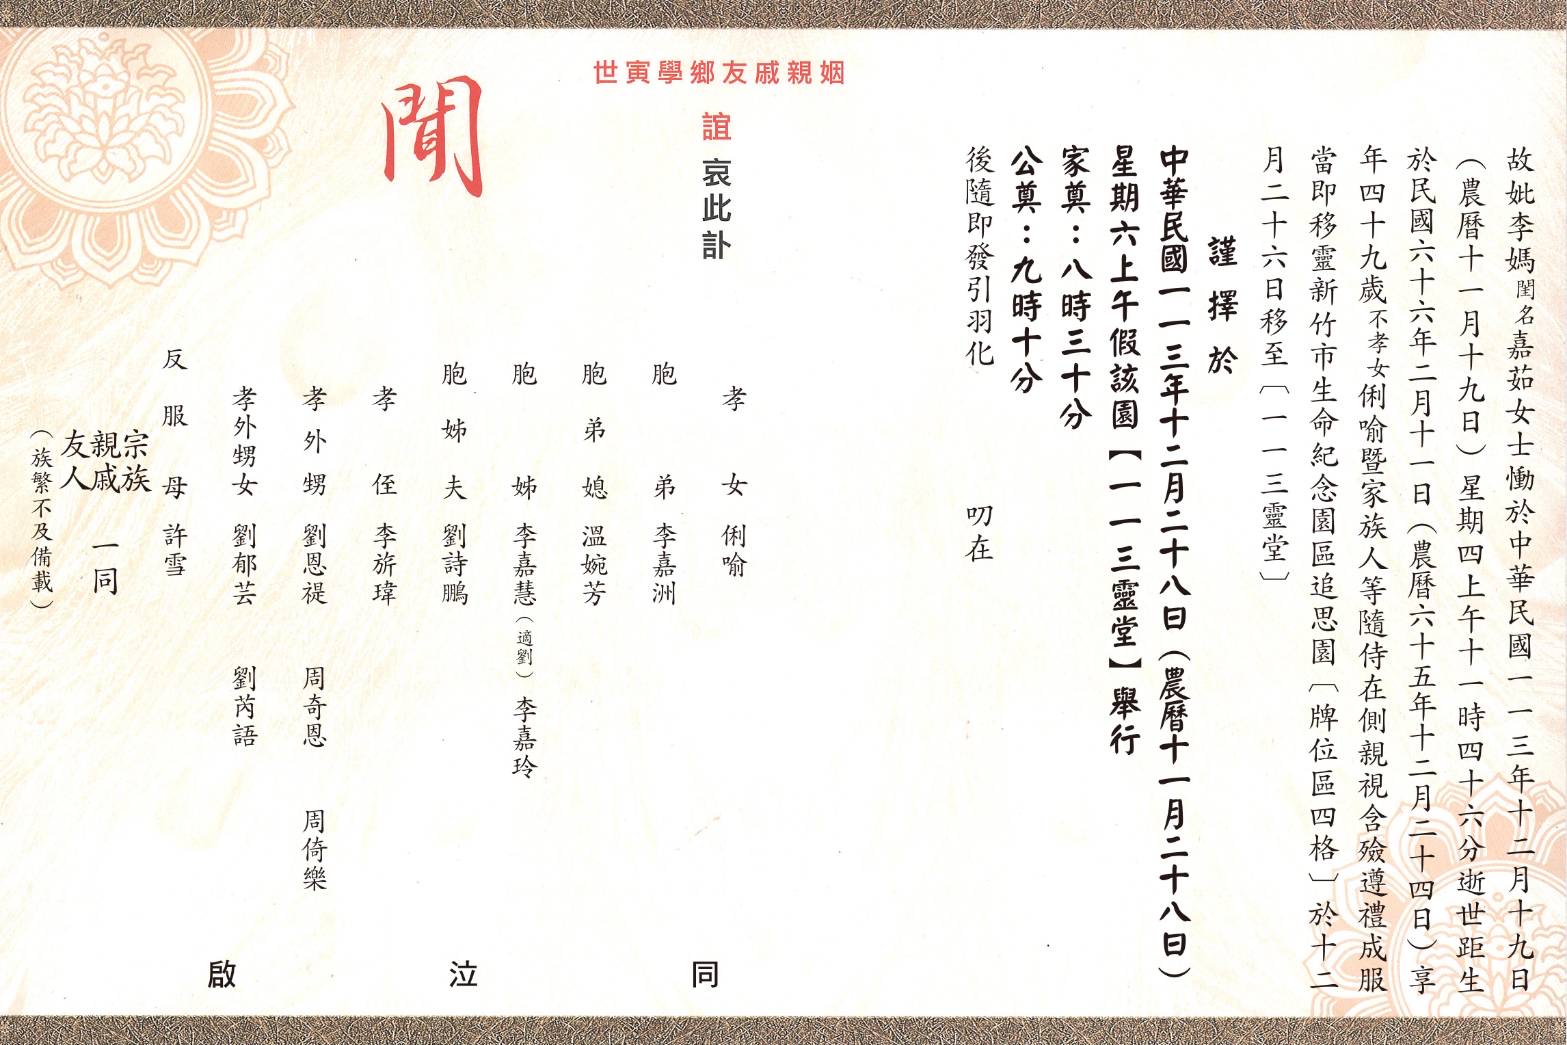 故妣李媽閨名嘉茹女士慟於中華民國一一三年十二月十九日
（農曆十一月十九日）星期四上午十一時四十六分逝世距生
於民國六十六年二月十一日（農曆六十五年十二月二十四日）享
年四十九歲不孝女俐喻暨家族人等隨侍在側親視含殮遵禮成服
當即移靈新竹市生命紀念園區追思園〔牌位區四格〕於十二
月二十六日移至〔一一三靈堂〕
謹擇於
中華民國一一三年十二月二十八日（農曆十一月二十八日）
星期六上午假該園【一一三靈堂】舉行
家奠：八時三十分
公奠：九時十分
後隨即發引羽化 叨在
姻親戚友鄉學寅世
誼哀此訃
聞
孝女 俐喻
胞弟 李嘉洲
胞弟媳 溫婉芳
胞姊 李嘉慧（適劉）李嘉玲
胞姊夫 劉詩鵬
孝侄 李旂瑋
孝外甥 劉恩禔 周奇恩 周倚樂
孝外甥女 劉郁芸 劉芮語
反服母 許雪
宗族
親戚 一同
友人
（族繁不及備載）
同泣啟